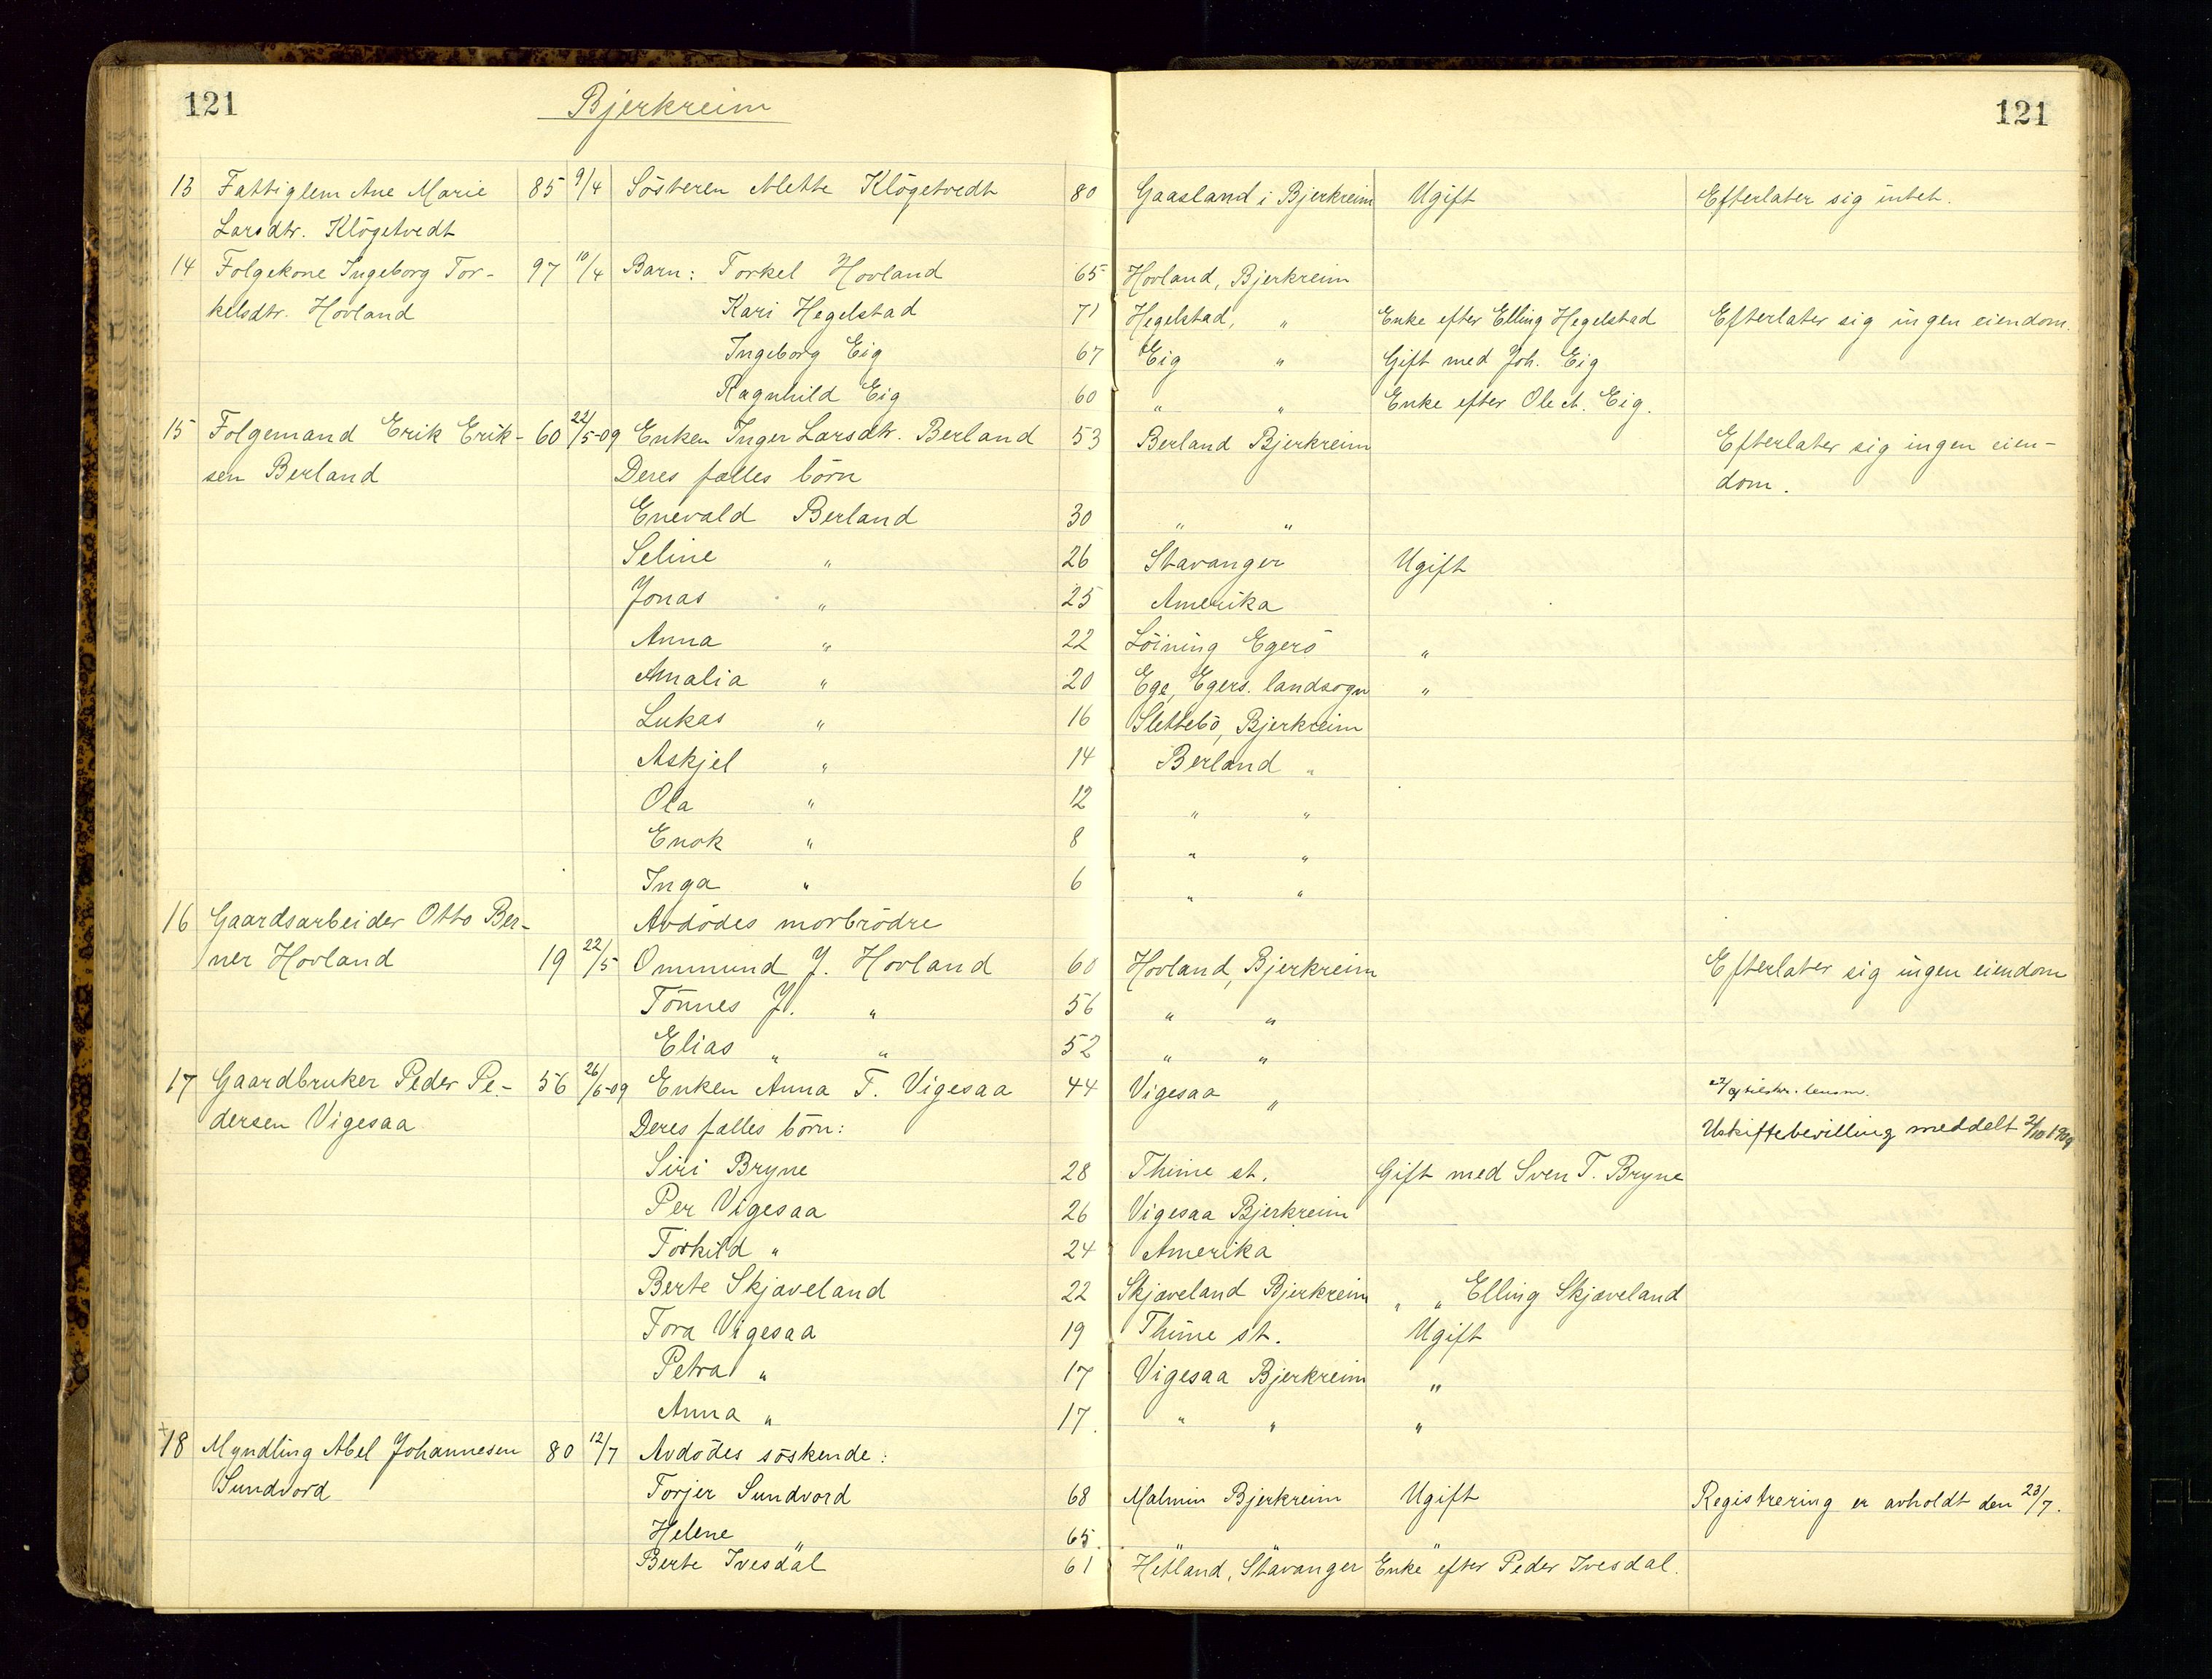 121 Bjerkreim 121
13 Fattiglem Ane Marie 85 9/4 Søsteren Mette Kløgetvedt 80 Gaasland i Bjerkreim Ugift Efterlater sig intet.
Larsdtr. Kløgetvedt
14 Folgekone Ingeborg Tor- 97 10/4 Barn: Torkel Hovland 65 Hovland, Bjerkreim
kelsdtr. Hovland Kari Hegelstad 71 Hegelstad, " Enke efter Elling Hegelstad Efterlater sig ingen eiendom.
Ingeborg Eig 67 Eig " Gift med Joh. Eig
Ragnhild Eig 60 " " Enke efter Ole A. Eig.
15 Folgemand Erik Erik- 60 22/5-09 Enken Inger Larsdtr. Berland 53 Berland Bjerkreim Efterlater sig ingen eien-
sen Berland Deres fælles børn dom.
Enevald Berland 30 " "
Seline " 26 Stavanger Ugift
Jonas " 25 Amerika
Anna " 22 Løining Egerø "
Amalia " 20 Ege, Egers. landsogn "
Lukas " 16 Slettebø, Bjerkreim
Askjel " 14 Berland "
Ola " 12 " "
Enok " 8 " "
Inga " 6 " "
16 Gaardsarbeider Otto Ber- Avdødes morbrødre
ner Hovland 19 22/5 Ommund J. Hovland 60 Hovland, Bjerkreim Efterlater sig ingen eiendom
Tønnes J. " 56 " "
Elias " " 52 " "
17 Gaardbruker Peder Pe- 56 26/6-09 Enken Anna T. Vigesaa 44 Vigesaa " lensm.
dersen Vigesaa Deres fælles børn: Uskiftebevilling meddelt 2/10 1909
Siri Bryne 28 Thime st. Gift med Sven T. Bryne
Per Vigesaa 26 Vigesaa Bjerkreim
Torkild " 24 Amerika
Berte Skjæveland 22 Skjæveland Bjerkreim " " Elling Skjæveland
Tora Vigesaa 19 Thime st. Ugift
Petra " 17 Vigesaa Bjerkreim "
Anna " 17. " " "
+18 Myndling Abel Johannesen 80 12/7 Avdødes søskende:
Sundvord Torjer Sundvord 68 Malmin Bjerkreim Ugift Registrering er avholdt den 23/7.
Helene " 65. " " "
Berte Ivesdal 61 Hetland, Stavanger Enke efter Peder Ivesdal.